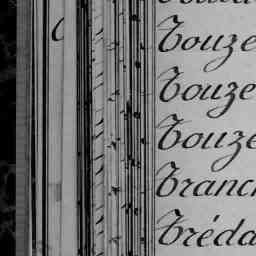 Touze
Touze
Touze
Tranc
Tréda